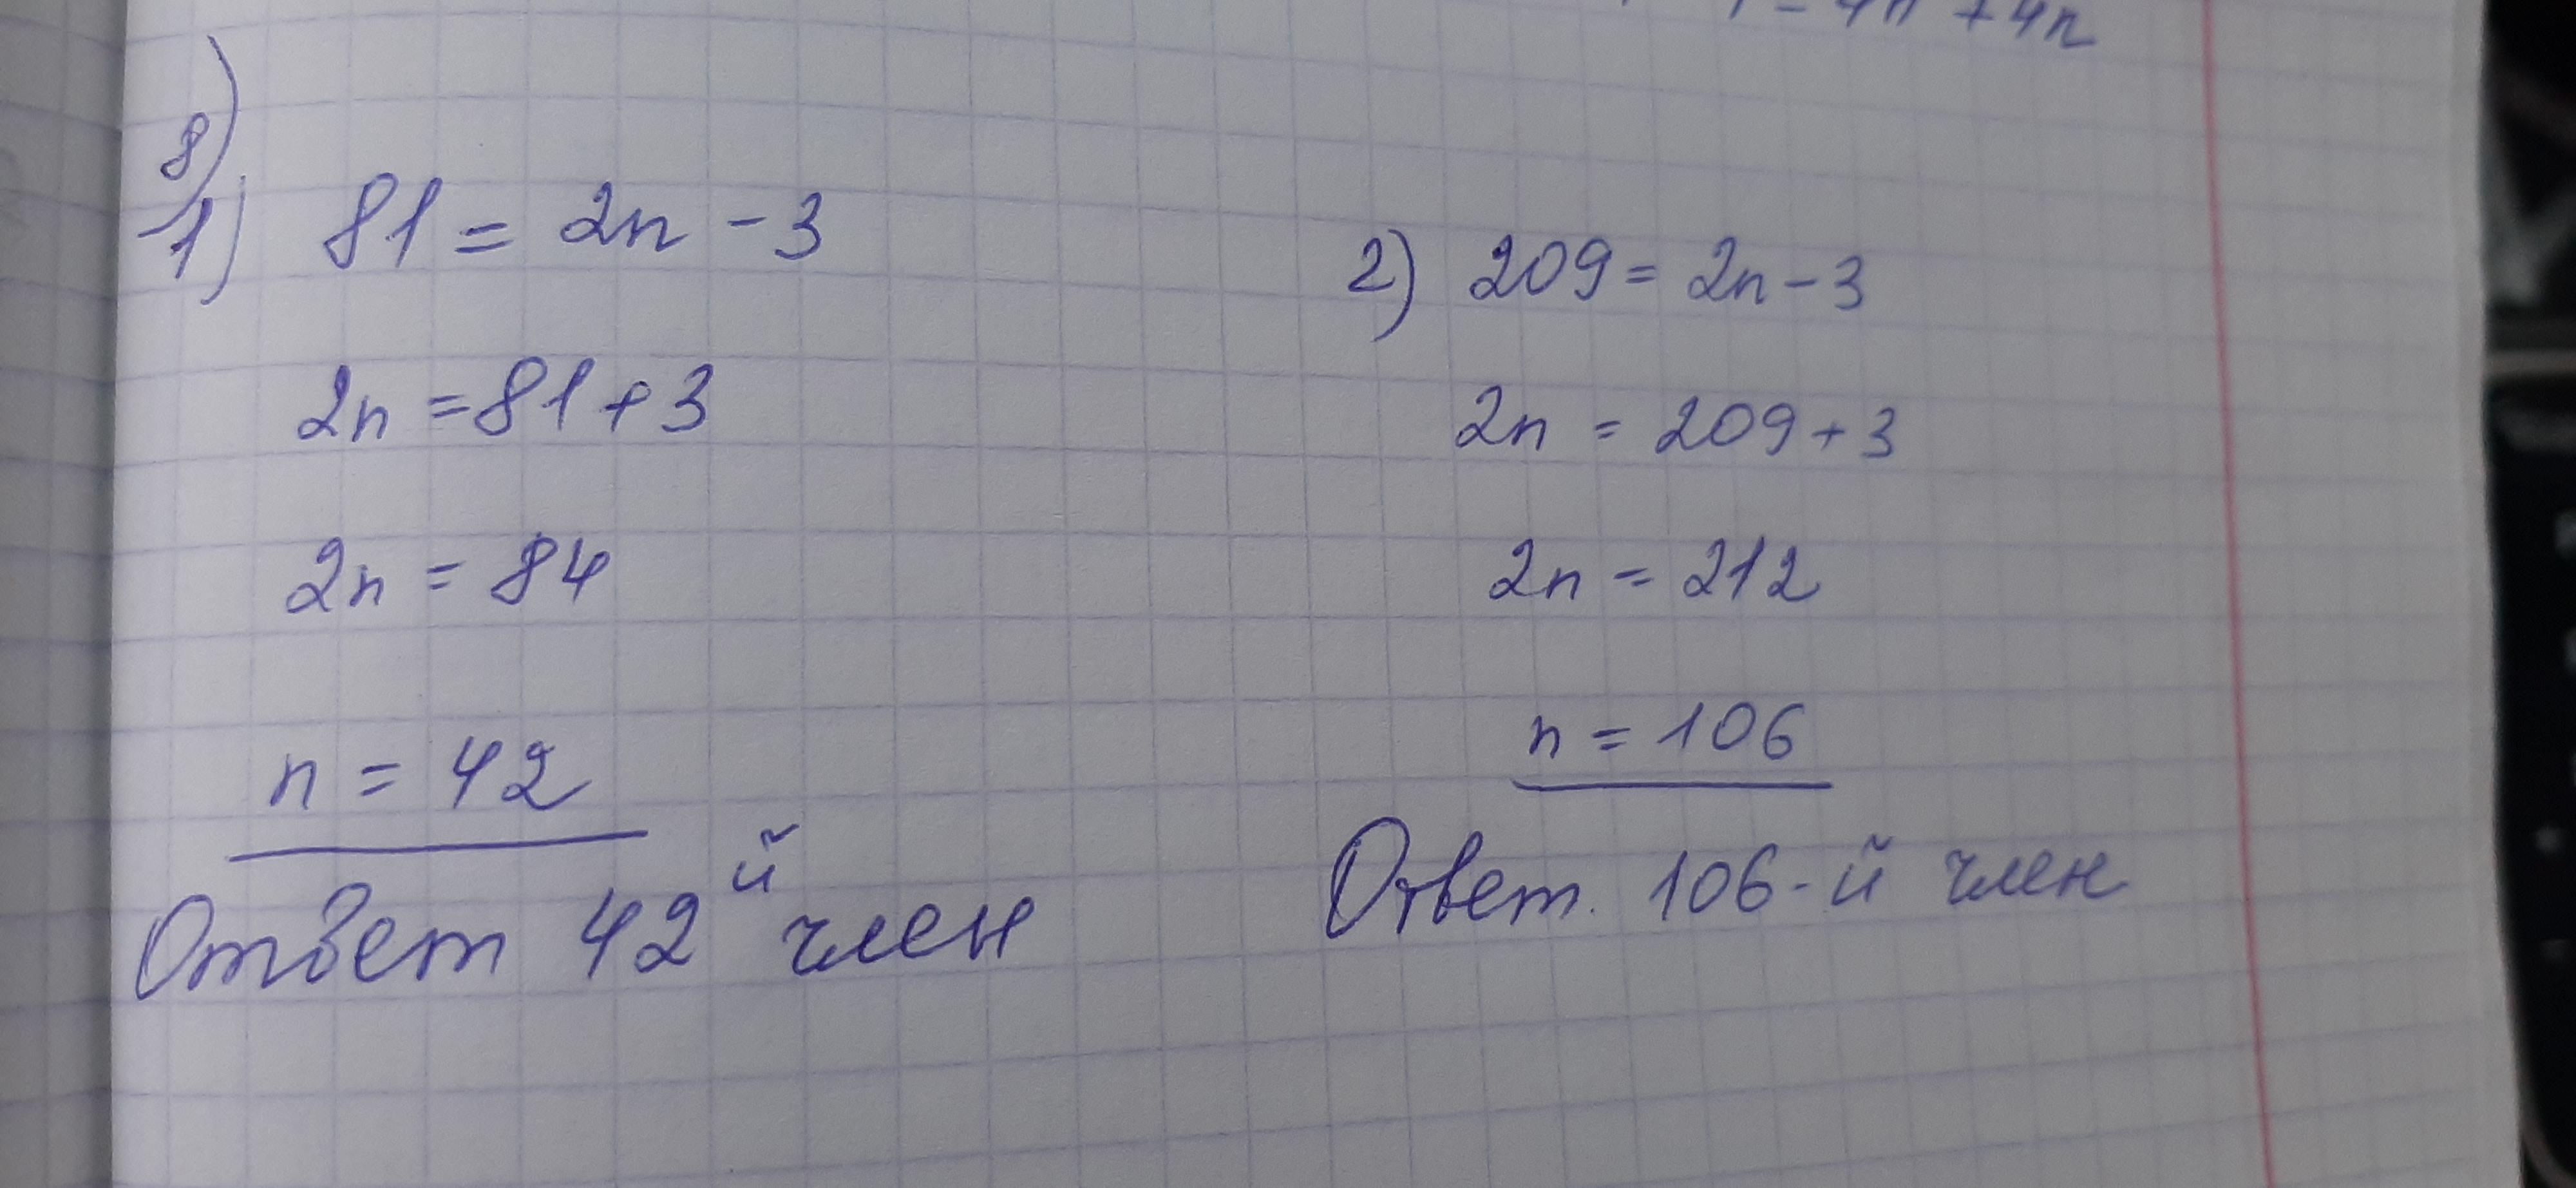 +4n
8)
1) 81 = 2n - 3
2n = 81 + 3
2n = 84
n = 42
Ответ 42й член
2) 209 = 2n - 3
2n = 209 + 3
2n = 212
n = 106
Ответ. 106-й член